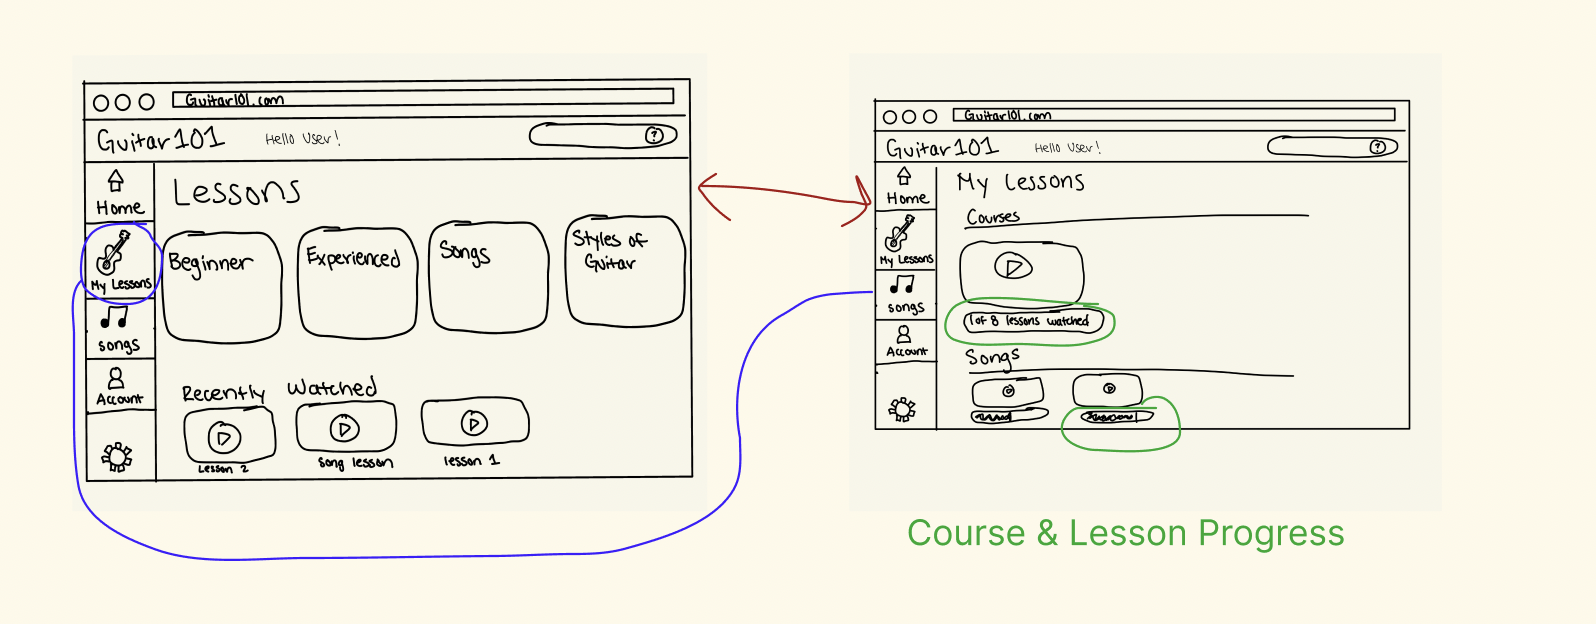 Guitar101.com
Guitar101 Hello User! ?
Home
My Lessons
songs
Account
Lessons
Beginner
Experienced
Songs
Styles of
Guitar
Recently Watched
Lesson 2
Song lesson
lesson 1
Guitar101.com
Guitar101 Hello User! ?
Home
My Lessons
songs
Account
My Lessons
Courses
1 of 8 lessons watched
Songs
Course & Lesson Progress